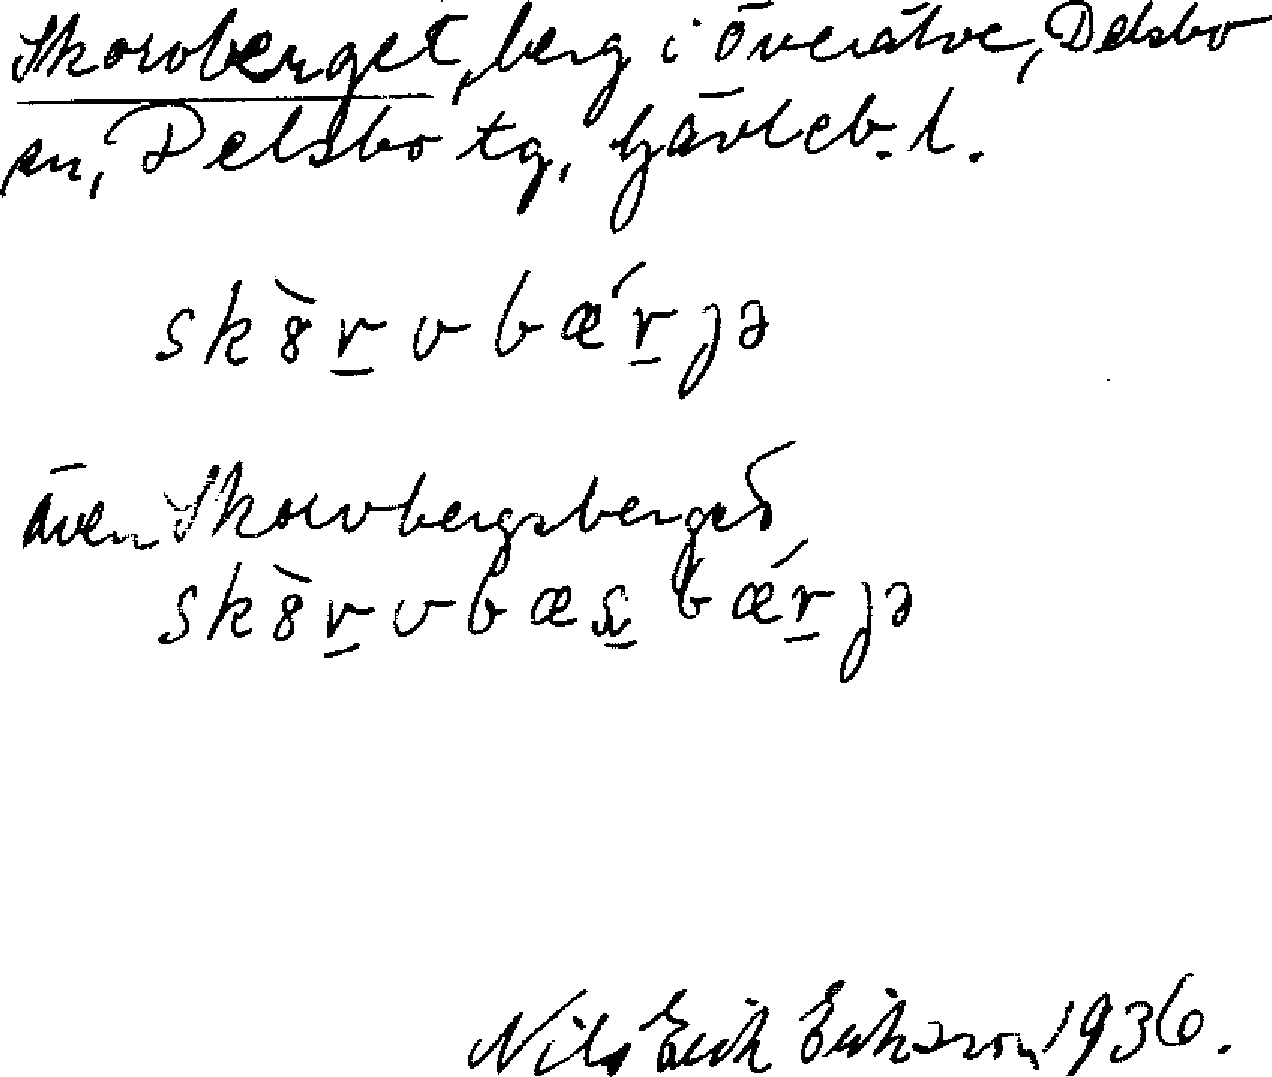 Skorvberget, berg i Överälve, Delsbo
sn, Delsbo tg, Gävleb. l.
skȣ̀r̲vbǽr̲jə
även Skorvbergsberget
skȣ̀r̲vbæs̲bǽr̲jə
Nils Erik Eriksson 1936.